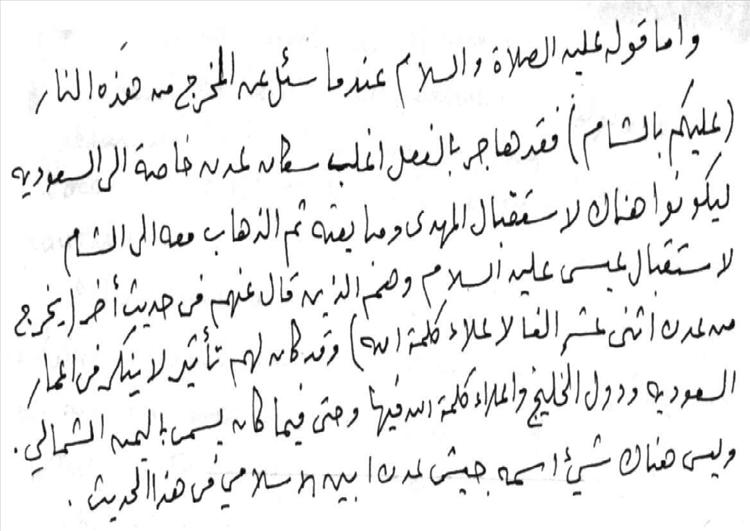 واما قوله عليه الصلاة والسلام عندما سئل عن المخرج من هذه النار
(عليكم بالشام) فقد هاجر بالفعل اغلب سكان عدن خاصة الى السعوديه
ليكونوا هناك لاستقبال المهدى ومبايعته ثم الذهاب معه الى الشام
لاستقبال عيسى عليه السلام وهم الذين قال عنهم فى حديث أخر (يخرج
من عدن اثنى عشر الفا لاعلاء كلمة الله) وقد كان لهم تأثير لا ينكر فى اعمار
السعوديه ودول الخليج واعلاء كلمة الله فيها وحتى فيما كان يسمى باليمن الشمالي.
وليس هناك شيء اسمه جيش عدن ابين الاسلامي فى هذا الحديث.